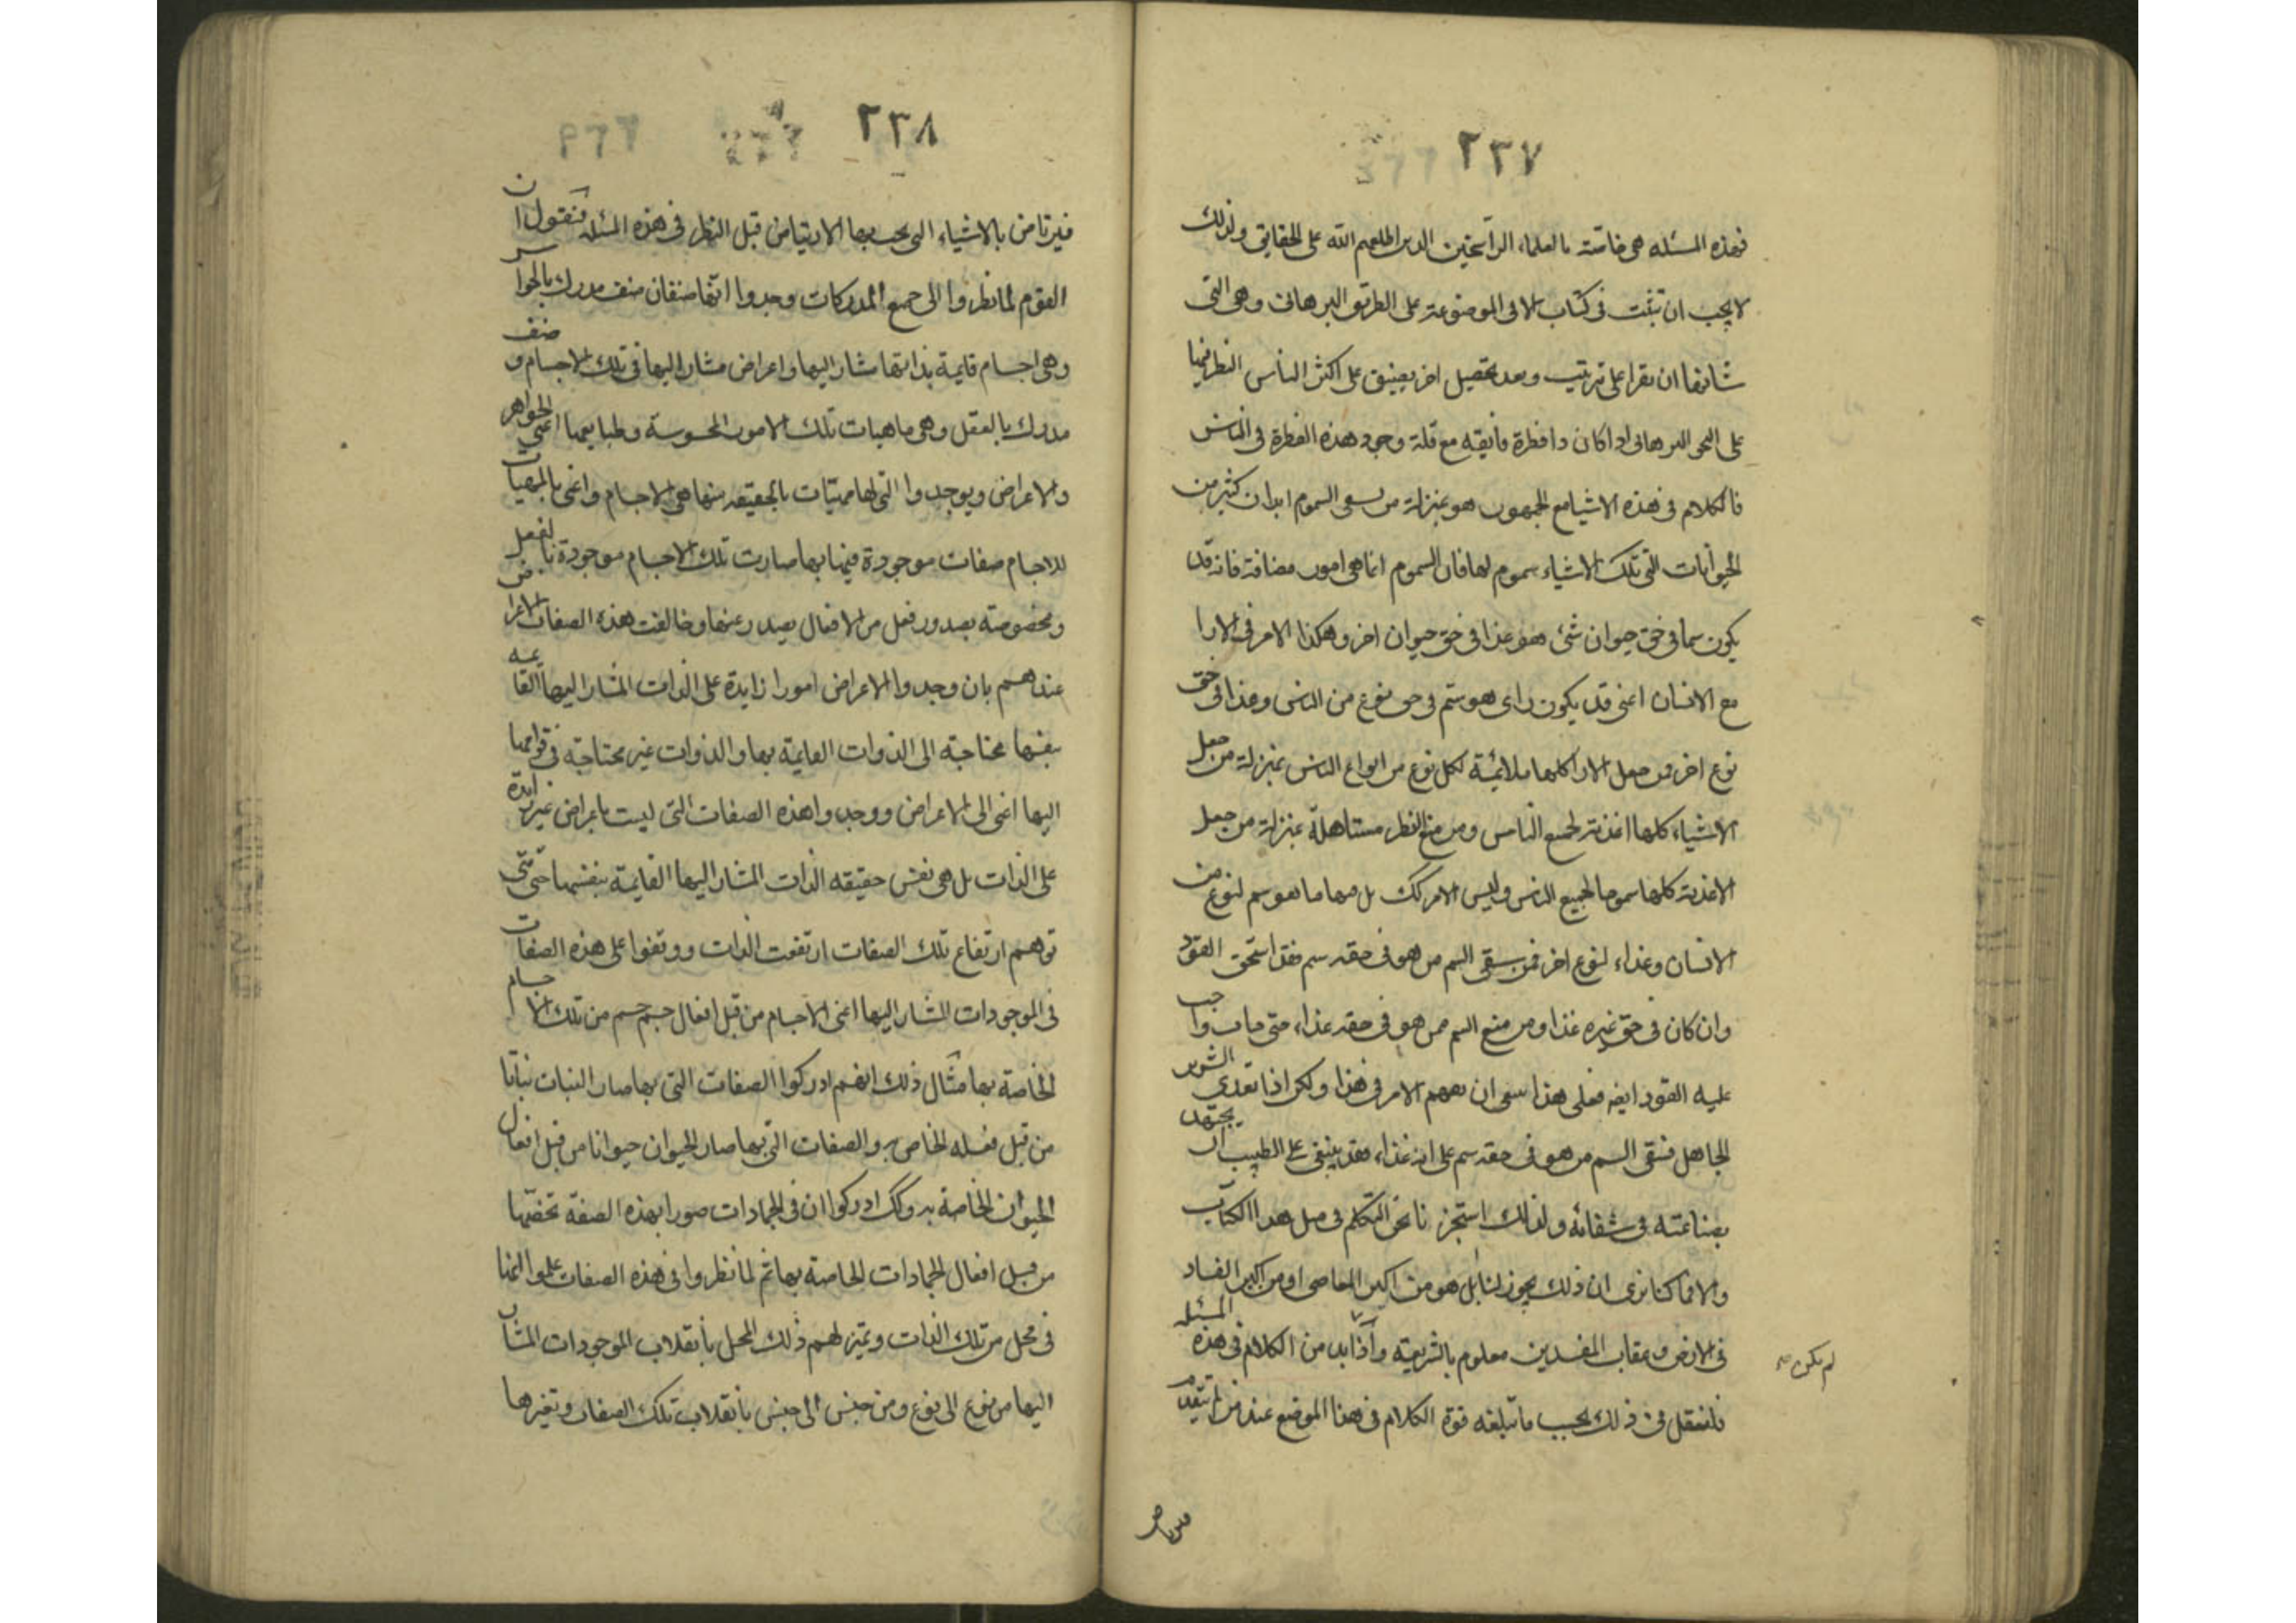 ٢٣٧
فهذه المسئله هى خاصّته بالعلماء الراسخين الدين اطلعهم الله على الحقايق ولذلك
لا يجب ان تثبت فى كتاب الا فى الموضوعة على الطريق البرهانى وهى التى
شانها ان تقرا على ترتيب وبعد تحصيل اخر يضيق على اكثر الناس النظر فيها
على النحو البرهانى اذا كان ذا فطرة فايقه مع قلة وجود هذه الفطرة فى الناس
فالكلام فى هذه الاشيا مع الجمهور هو بمنزلة من يسقى السموم ابدان كثير من
الحيوانات التى تلك الاشياء سموم لها فان السموم انما هى امور مضافة فانه قد
يكون سما فى حق حيوان شئ هو غذا فى حق حيوان اخر وهكذا الامر فى الارا
مع الانسان اعنى قد يكون راى هو ستم فى حق نوع من الناس وغذا فى حق
نوع اخر فمن جعل الارا كلها ملائمة لكل نوع من انواع الناس بمنزلة من جعل
الاشياء كلها اغذية لجميع الناس ومن منع النظر مستاهله بمنزلة من جعل
الاغذية كلها سموما لجميع الناس وليس الامر كك بل منها ما هو سم لنوع من
الانسان وغذاء لنوع اخر فمن سقى السم من هو فى حقه سم فقد استحق القود
وان كان فى حق غيره غذا ومن منع السم ممن هو فى حقه غذاء حتى مات واجب
عليه القود ايضه فعلى هذا ينبغى ان يفهم الامر فى هذا ولكن اذا تعدى الشرير
الجاهل فسقى السم من هو فى حقه سم على انه غذاء فقد ينبغى على الطبيب ان يجتهد
بصناعته فى شفائه ولذلك استجزنا نحن التكلم فى مثل هذا الكتاب
والا فما كنا نرى ان ذلك يجوز لنا بل هو من اكبر المعاصى او من اكبر الفساد
فى الارض وعقاب المفسدين معلوم بالشريعة واذا بد من الكلام فى هذه المسئله
لم يكن صح
فلنقل فى ذلك بحسب ما تبلغه قوة الكلام فى هذا الموضع عند من لم يتقدم
٢٣٨
فيرتاض بالاشياء التى يجب بها الارتياض قبل النظر فى هذه المسئله فنقول ان
القوم لما نظروا الى جميع المدركات وجدوا انها صنفان صنف مدرك بالحواس
وهى اجسام قايمة بذاتها مشار اليها واعراض مشار اليها فى تلك الاجسام وصنف
مدرك بالعقل وهى ماهيات تلك الامور المحسوسة وطبايعها اعنى الجواهر
والاعراض ويوجدوا التى لها مهيّات بالحقيقه منها هى الاجسام واعنى بالمهيات
للاجسام صفات موجودة فيها بها صارت تلك الاجسام موجودة بالفعل
ومخصوصة بصدور فعل من الافعال يصدر عنها وخالفت هذه الصفات الاعراض
عندهم بان وجدوا الاعراض امورا زايدة على الذات المشار اليها القايمه
بنفسها محتاجة الى الذوات القايمة بها والذوات غير محتاجة فى قوامها
اليها اعنى الى الاعراض ووجدوا هذه الصفات التى ليست باعراض غير زايدة
على الذات بل هى نفس حقيقه الذات المشار اليها القايمة بنفسها حتى متى
توهم ارتفاع تلك الصفات ارتفعت الذات ووقفوا على هذه الصفات
فى الموجودات المشار اليها اعنى الاجسام من قبل افعال جسم جسم من تلك الاجسام
الخاصة بها مثال ذلك انهم ادركوا الصفات التى بها صار النبات نباتا
من قبل فعله الخاص به والصفات التى بها صار الحيوان حيوانا من قبل افعال
الحيوان الخاصة به وكك ادركوا ان فى الجمادات صورا بهذه الصفة تخصّها
من قبل افعال الجمادات الخاصة بها ثم لما نظروا فى هذه الصفات علموا انها
فى محل من تلك الذات وتميز لهم ذلك المحل بانقلاب الموجودات المشار
اليها من نوع الى نوع ومن جنس الى جنس بانقلاب تلك الصفات وتغيرها